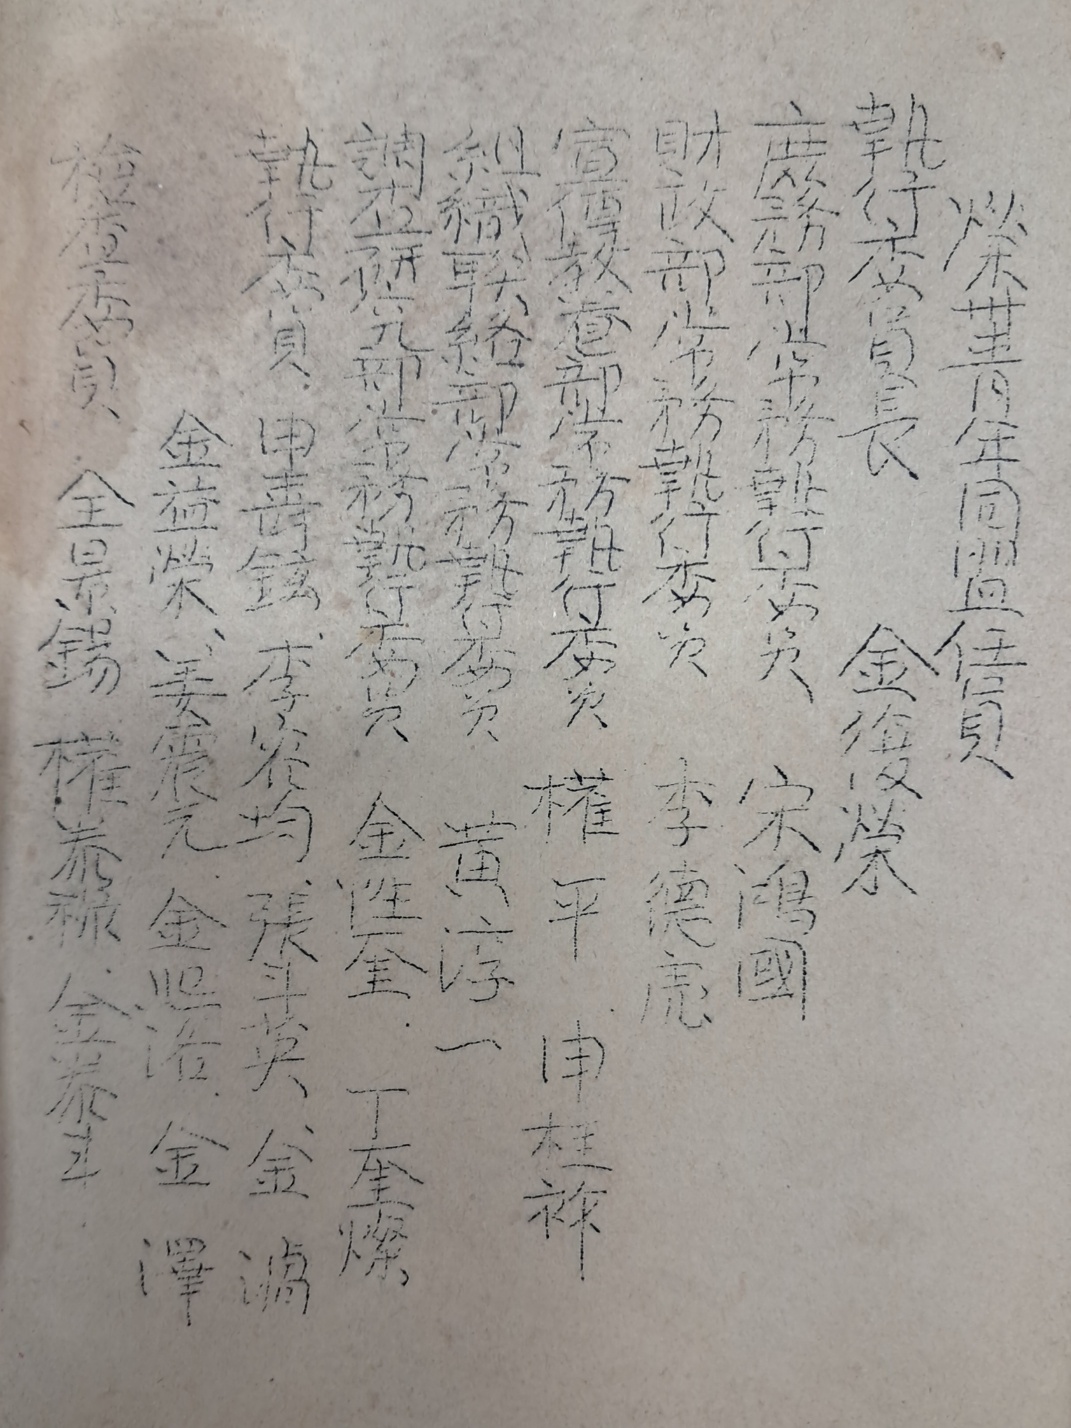 榮青年同盟任員
執行委員長 金復榮
庶務部常務執行委員 宋鴻國
財政部常務執行委員 李德應
宣傳敎養部常務執行委員 權平 申柱祚
組織聯絡部常務執行委員 黃淳一
調查硏究部常務執行委員 金陞奎. 丁奎燦.
執行委員. 申壽鉉. 李宗均. 張斗英. 金
金益榮. 姜震元. 金 金澤
檢査委員 全景錫 權泰稶. 金泰斗.